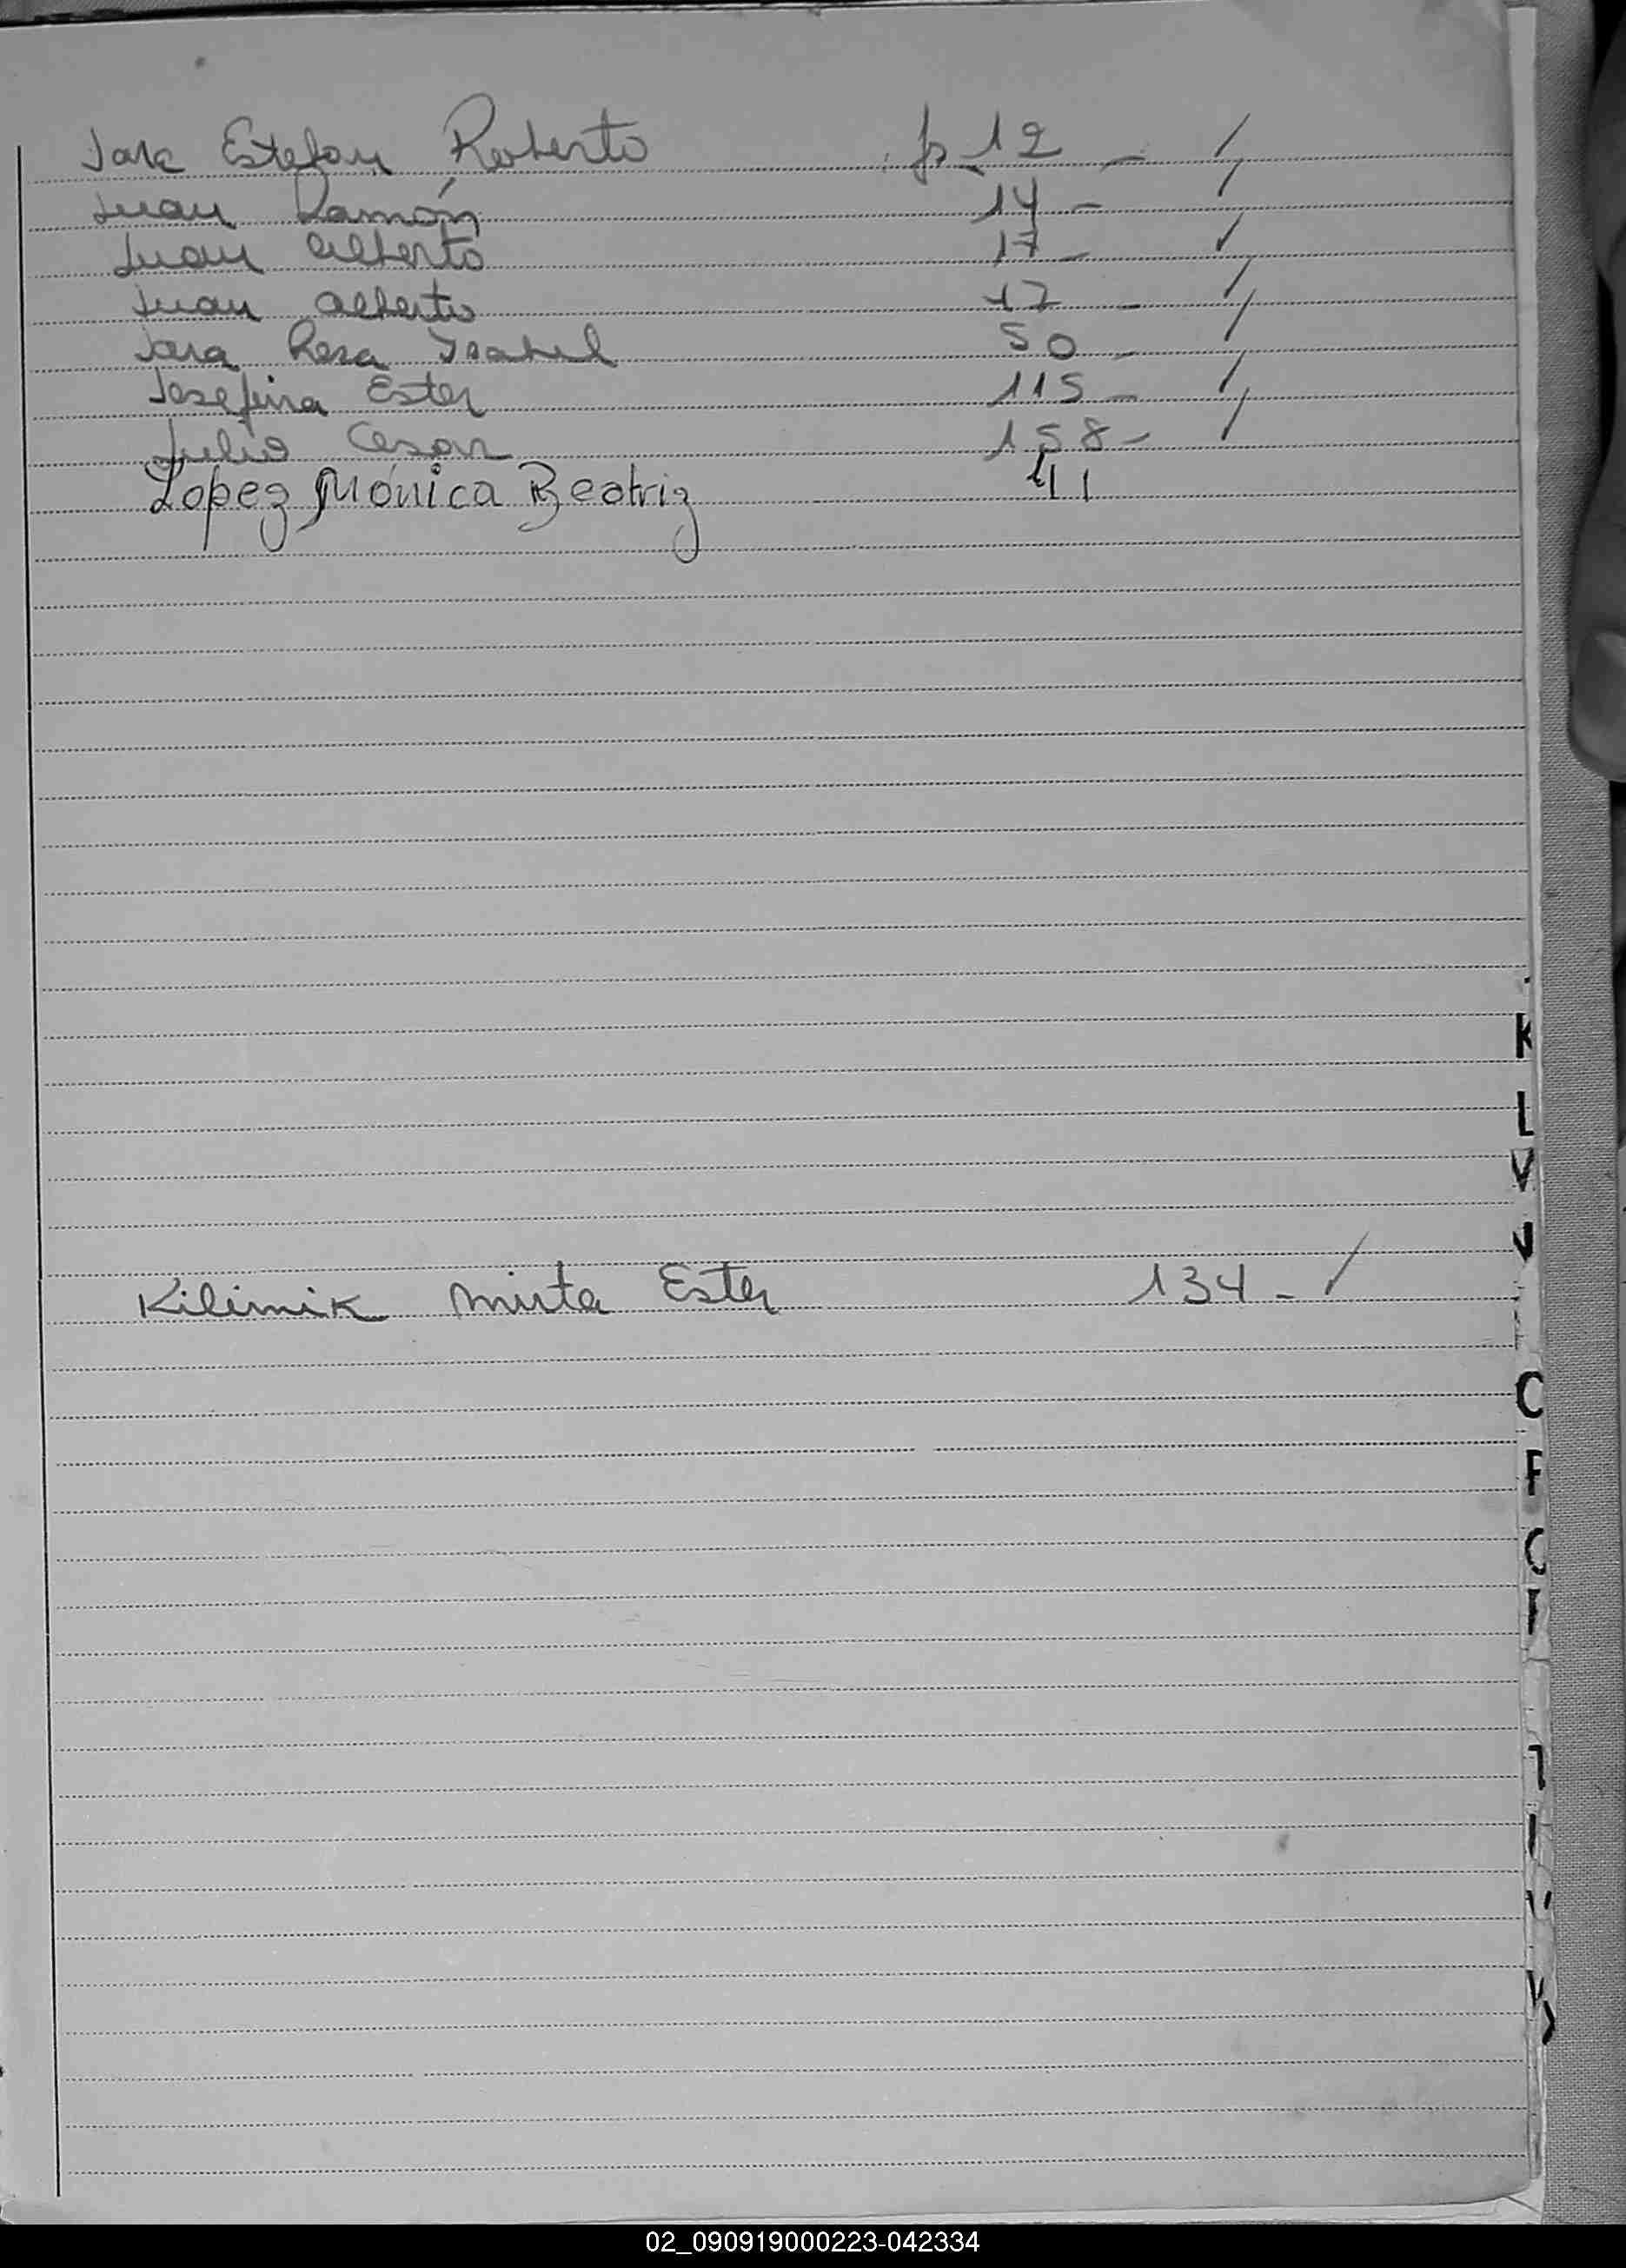 Jara Estefan Roberto fs 12 - /
Juan Ramón 14 - /
Juan Alberto 17 - /
Juan Alberto 17 - /
Jara Rosa Isabel 50 - /
Josefina Ester 115 - /
Julio Cesar 158 - /
Lopez Mónica Beatriz 41
K
L
Kilimik Mirta Ester 134 - /
02_090919000223-042334